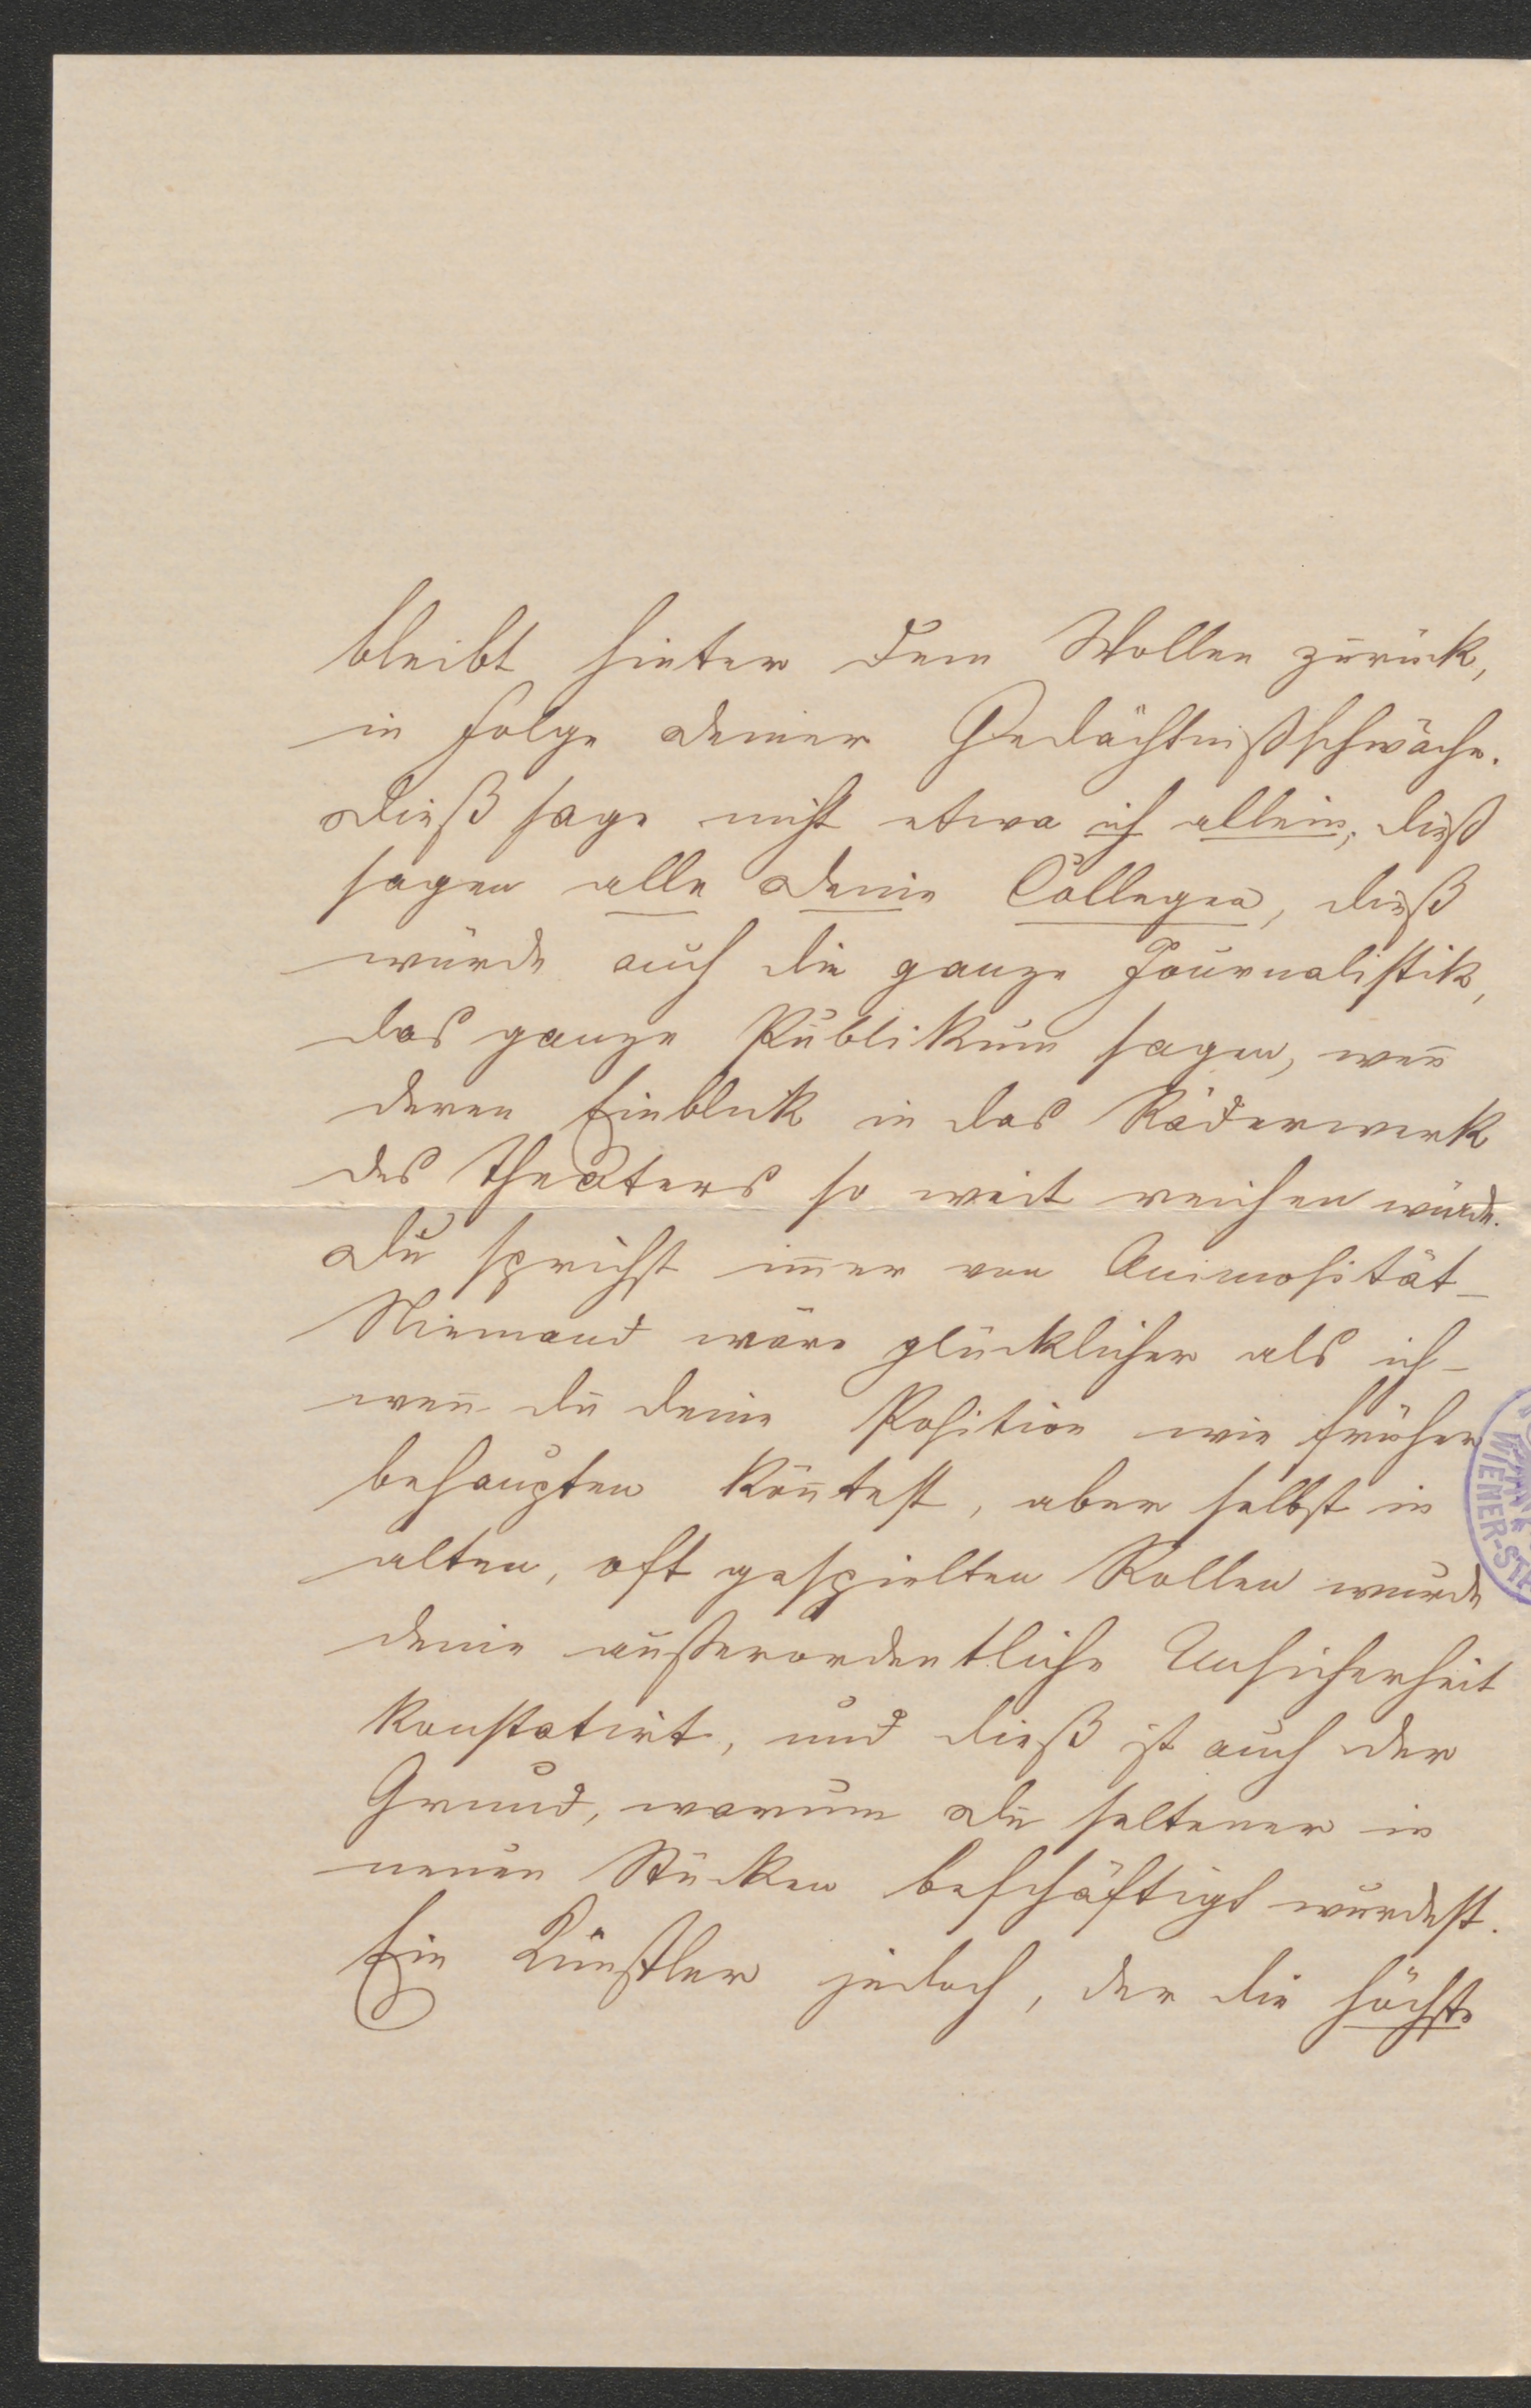 bleibt hinter dem Wollen zurück,
in Folge Deiner Gedächtnißschwäche.
Dieß sage nicht etwa ich allein, dieß
sagen alle Deine Collegen, dieß
würde auch die ganze Journalistik,
das ganze Publikum sagen, weñ
deren Einblick in das Räderwerk
des Theaters so weit reichen würde.
Du sprichst im̃er von Animosität –
Niemand wäre glücklicher als ich –
weñ du deine Position wie früher
behaupten köñtest, aber selbst in
alten, oft gespielten Rollen wurde
deine außerordentliche Unsicherheit
konstatirt, und dieß ist auch der
Grund, warum Du seltener in
neuen Stücken beschäftigt wurdest.
Ein Künstler jedoch, der die höchste
WIENER-ST